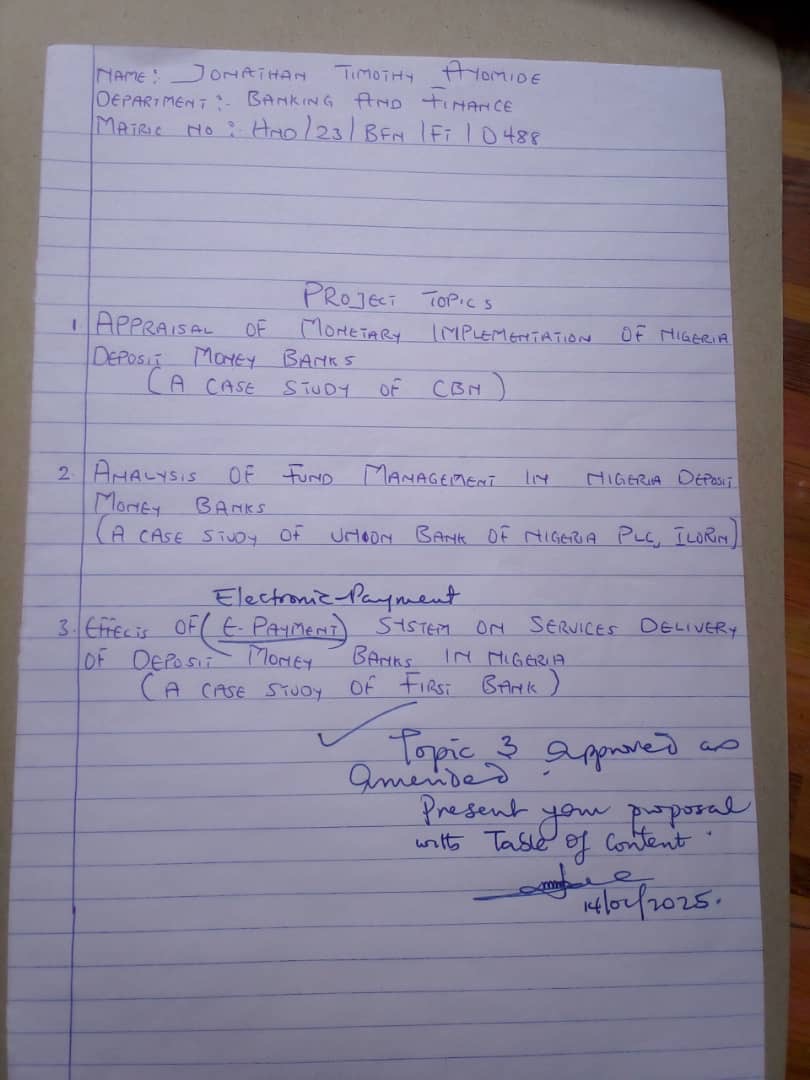 NAME: JONATHAN TIMOTHY AYOMIDE
DEPARTMENT:- BANKING AND FINANCE
MATRIC NO: HND/23/BFN/FT/0488
PROJECT TOPICS
1. APPRAISAL OF MONETARY IMPLEMENTATION OF NIGERIA
DEPOSIT MONEY BANKS
(A CASE STUDY OF CBN)
2. ANALYSIS OF FUND MANAGEMENT IN NIGERIA DEPOSIT
MONEY BANKS
(A CASE STUDY OF UNION BANK OF NIGERIA PLC, ILORIN)
Electronic-Payment
3. EFFECTS OF (E-PAYMENT) SYSTEM ON SERVICES DELIVERY
OF DEPOSIT MONEY BANKS IN NIGERIA
(A CASE STUDY OF FIRST BANK)
Topic 3 approved as
amended.
Present your proposal
with Table of Content.